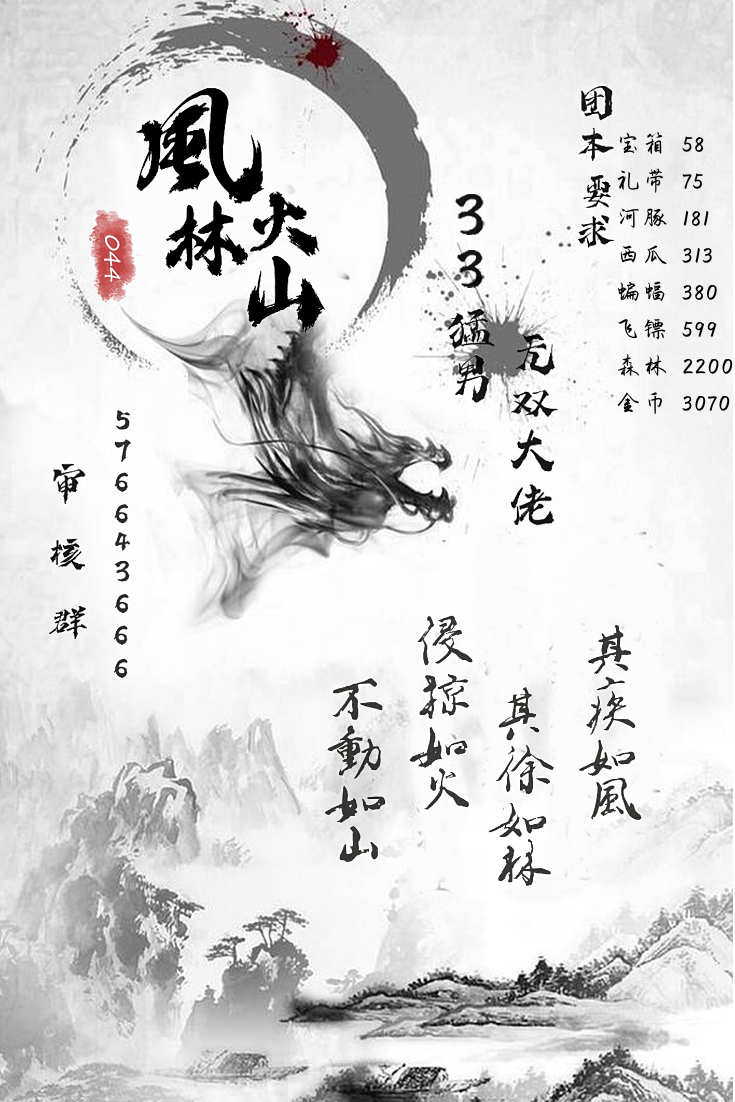 風林火山
044
团本要求
宝箱 58
礼带 75
河豚 181
西瓜 313
蝙蝠 380
飞镖 599
森林 2200
金币 3070
33猛男
无双大佬
审核群
5766436666
其疾如風
其徐如林
侵掠如火
不動如山